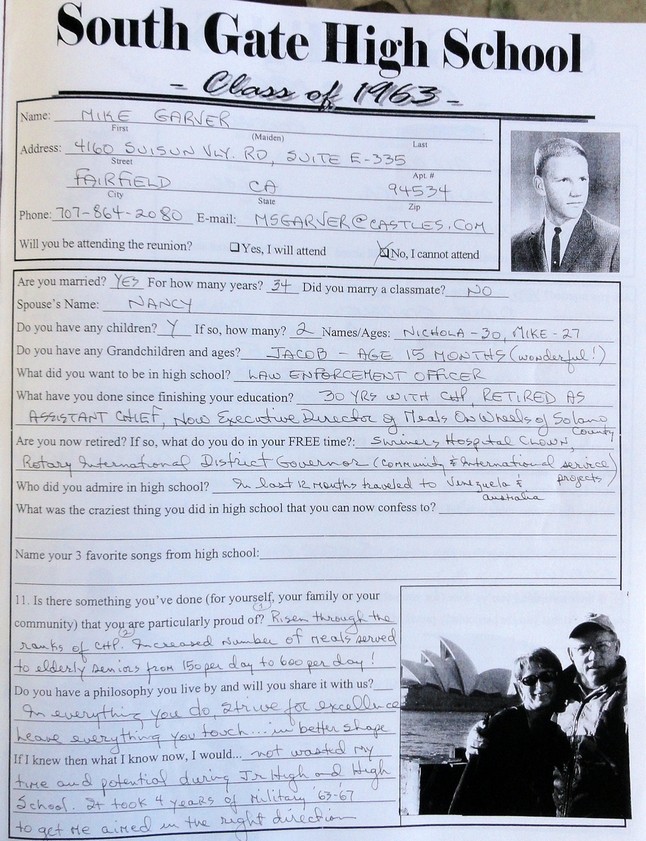 South Gate High School
- Class of 1963 -
Name: MIKE GARVER
First (Maiden) Last
Address: 4160 SUISUN VLY. RD, SUITE E-335
Street Apt. #
FAIRFIELD CA 94534
City State Zip
Phone: 707-864-2080 E-mail: MSGARVER@CASTLES.COM
Will you be attending the reunion? Yes, I will attend No, I cannot attend
Are you married? YES For how many years? 34 Did you marry a classmate? NO
Spouse's Name: NANCY
Do you have any children? Y If so, how many? 2 Names/Ages: NICHOLA - 30, MIKE - 27
Do you have any Grandchildren and ages? JACOB - AGE 15 MONTHS (wonderful!)
What did you want to be in high school? LAW ENFORCEMENT OFFICER
What have you done since finishing your education? 30 YRS WITH CHP, RETIRED AS
ASSISTANT CHIEF, NOW Executive Director of Meals On Wheels of Solano
County
Are you now retired? If so, what do you do in your FREE time?: Shriners Hospital Clown,
Rotary International District Governor (Community & International service)
projects
Who did you admire in high school? In last 12 months traveled to Venezuela &
australia
What was the craziest thing you did in high school that you can now confess to?
Name your 3 favorite songs from high school:
11. Is there something you've done (for yourself, your family or your
community) that you are particularly proud of? (1) Risen through the
ranks of CHP. (2) Increased number of meals served
to elderly seniors from 150 per day to 600 per day!
Do you have a philosophy you live by and will you share it with us?
In everything you do, strive for excellence
Leave everything you touch... in better shape
If I knew then what I know now, I would... not wasted my
time and potential during Jr High and High
School. It took 4 years of Military '63-'67
to get me aimed in the right direction